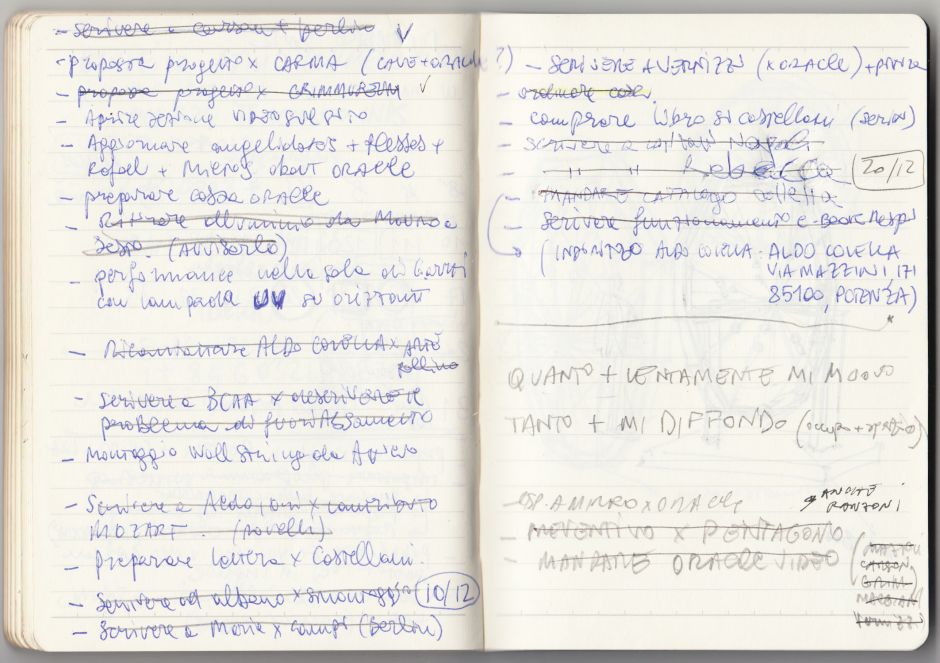 - scrivere a carson + berlin V
- proposta progetto x CARMA (CAVE + ORACLE ?)
- proposta progetto x GRIMMUSEUM V
- Aprire sezione
- Aggiornare angelidakis + +
Rafael + Micros about ORACLE
- preparare cassa ORACLE
- Ritirare alluminio da Mauro a
Sesto. (AVVISARLO)
- performance nella sala di
con lampada UV su orizzonti
- Ricontattare ALDO COLELLA x ARTÈ
pollino
- Scrivere a BCAA x descrivere il
problema di
- Montaggio Wall String da
- Scrivere a Aldo x contributo
MOZART. (rovelli)
- Preparare lavoro x Castellani.
- Scrivere ad albano x smontaggio (10/12)
- Scrivere a Maria x (Berlin)
- SCRIVERE A VERNIZZI (x ORACLE) +
- ordinare
- comprare libro di castellani (servon)
- scrivere a Napoli
- " " Rebecca 20/12
- MANDARE CATALOGO colella
- Scrivere funzionamento e-book Nesps
(INDIRIZZO ALDO COLELLA: ALDO COLELLA
VIA MAZZINI, 171
85100, POTENZA)
QUANTO + LENTAMENTE MI MUOVO
TANTO + MI DIFFONDO (occupo + spazio)
- x ORACLE
ANCHE
RANZONI
- PREVENTIVO x PENTAGONO
- MANDARE ORACLE VIDEO
CARSON
GRIM